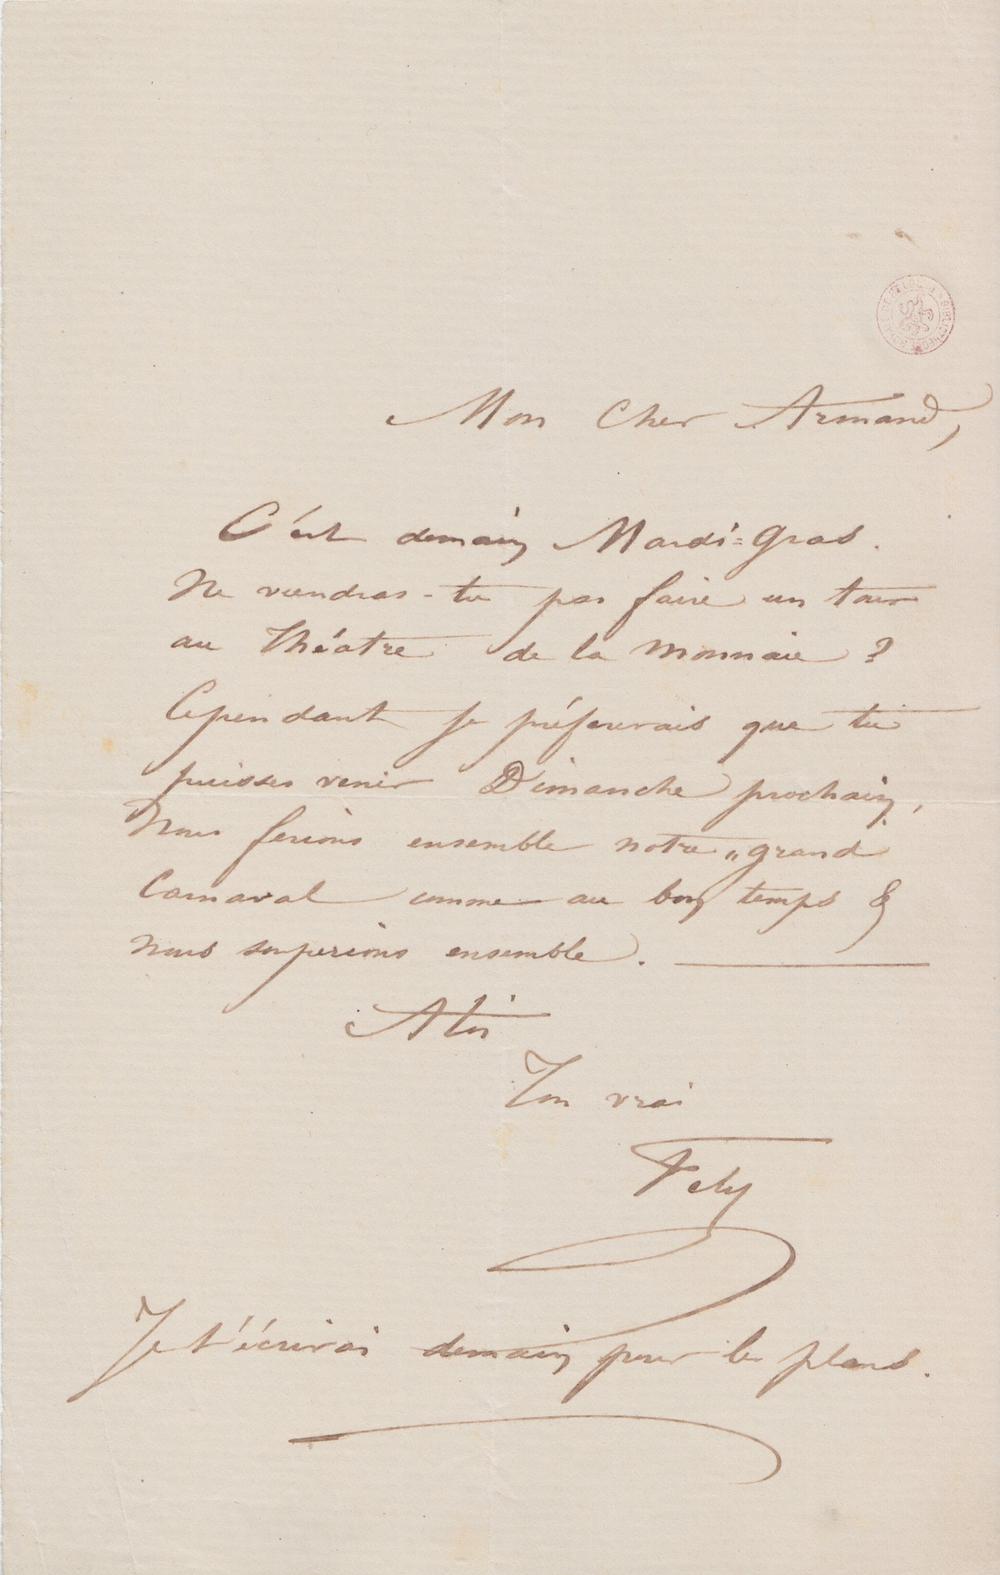 Mon Cher Armand,
C'est demain Mardi=Gras.
Ne viendras-tu pas faire un tour
au Théâtre de la Monnaie ?
Cependant je préfererais que tu
puisses venir Dimanche prochain,
Nous ferions ensemble notre „grand
Carnaval comme au bon temps &
nous souperions ensemble.
A toi
Ton vrai
Fely
Je t'écrirai demain pour les plans.